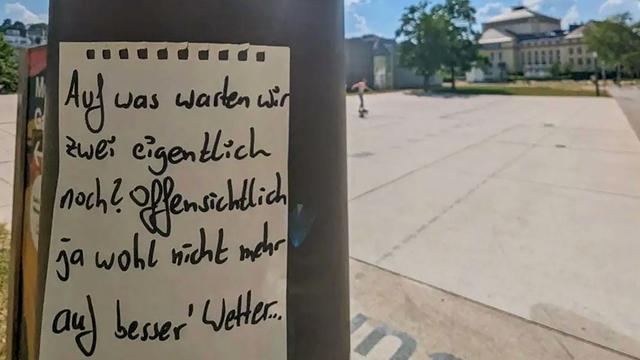 Auf was warten wir
zwei eigentlich
noch? Offensichtlich
ja wohl nicht mehr
auf besser' Wetter...